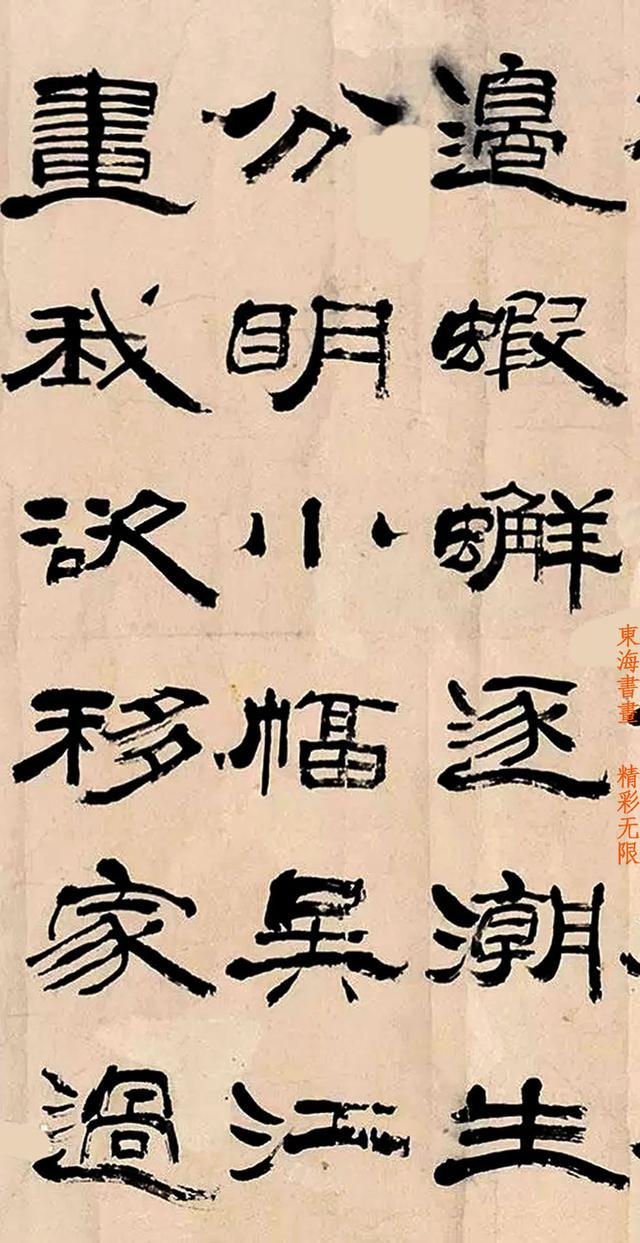 邊蝦蠏逐潮生
分明小幅吳江
畫我欲移家過
東海書畫 精彩无限